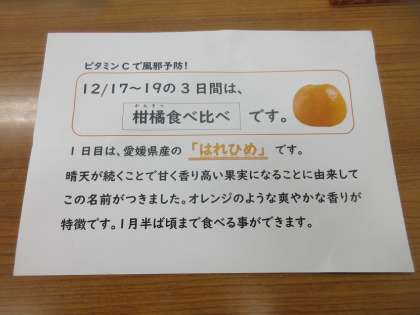 ビタミンCで風邪予防！
12/17～19の3日間は、
かんきつ
柑橘食べ比べ です。
1日目は、愛媛県産の「はれひめ」です。
晴天が続くことで甘く香り高い果実になることに由来して
この名前がつきました。オレンジのような爽やかな香りが
特徴です。1月半ば頃まで食べる事ができます。